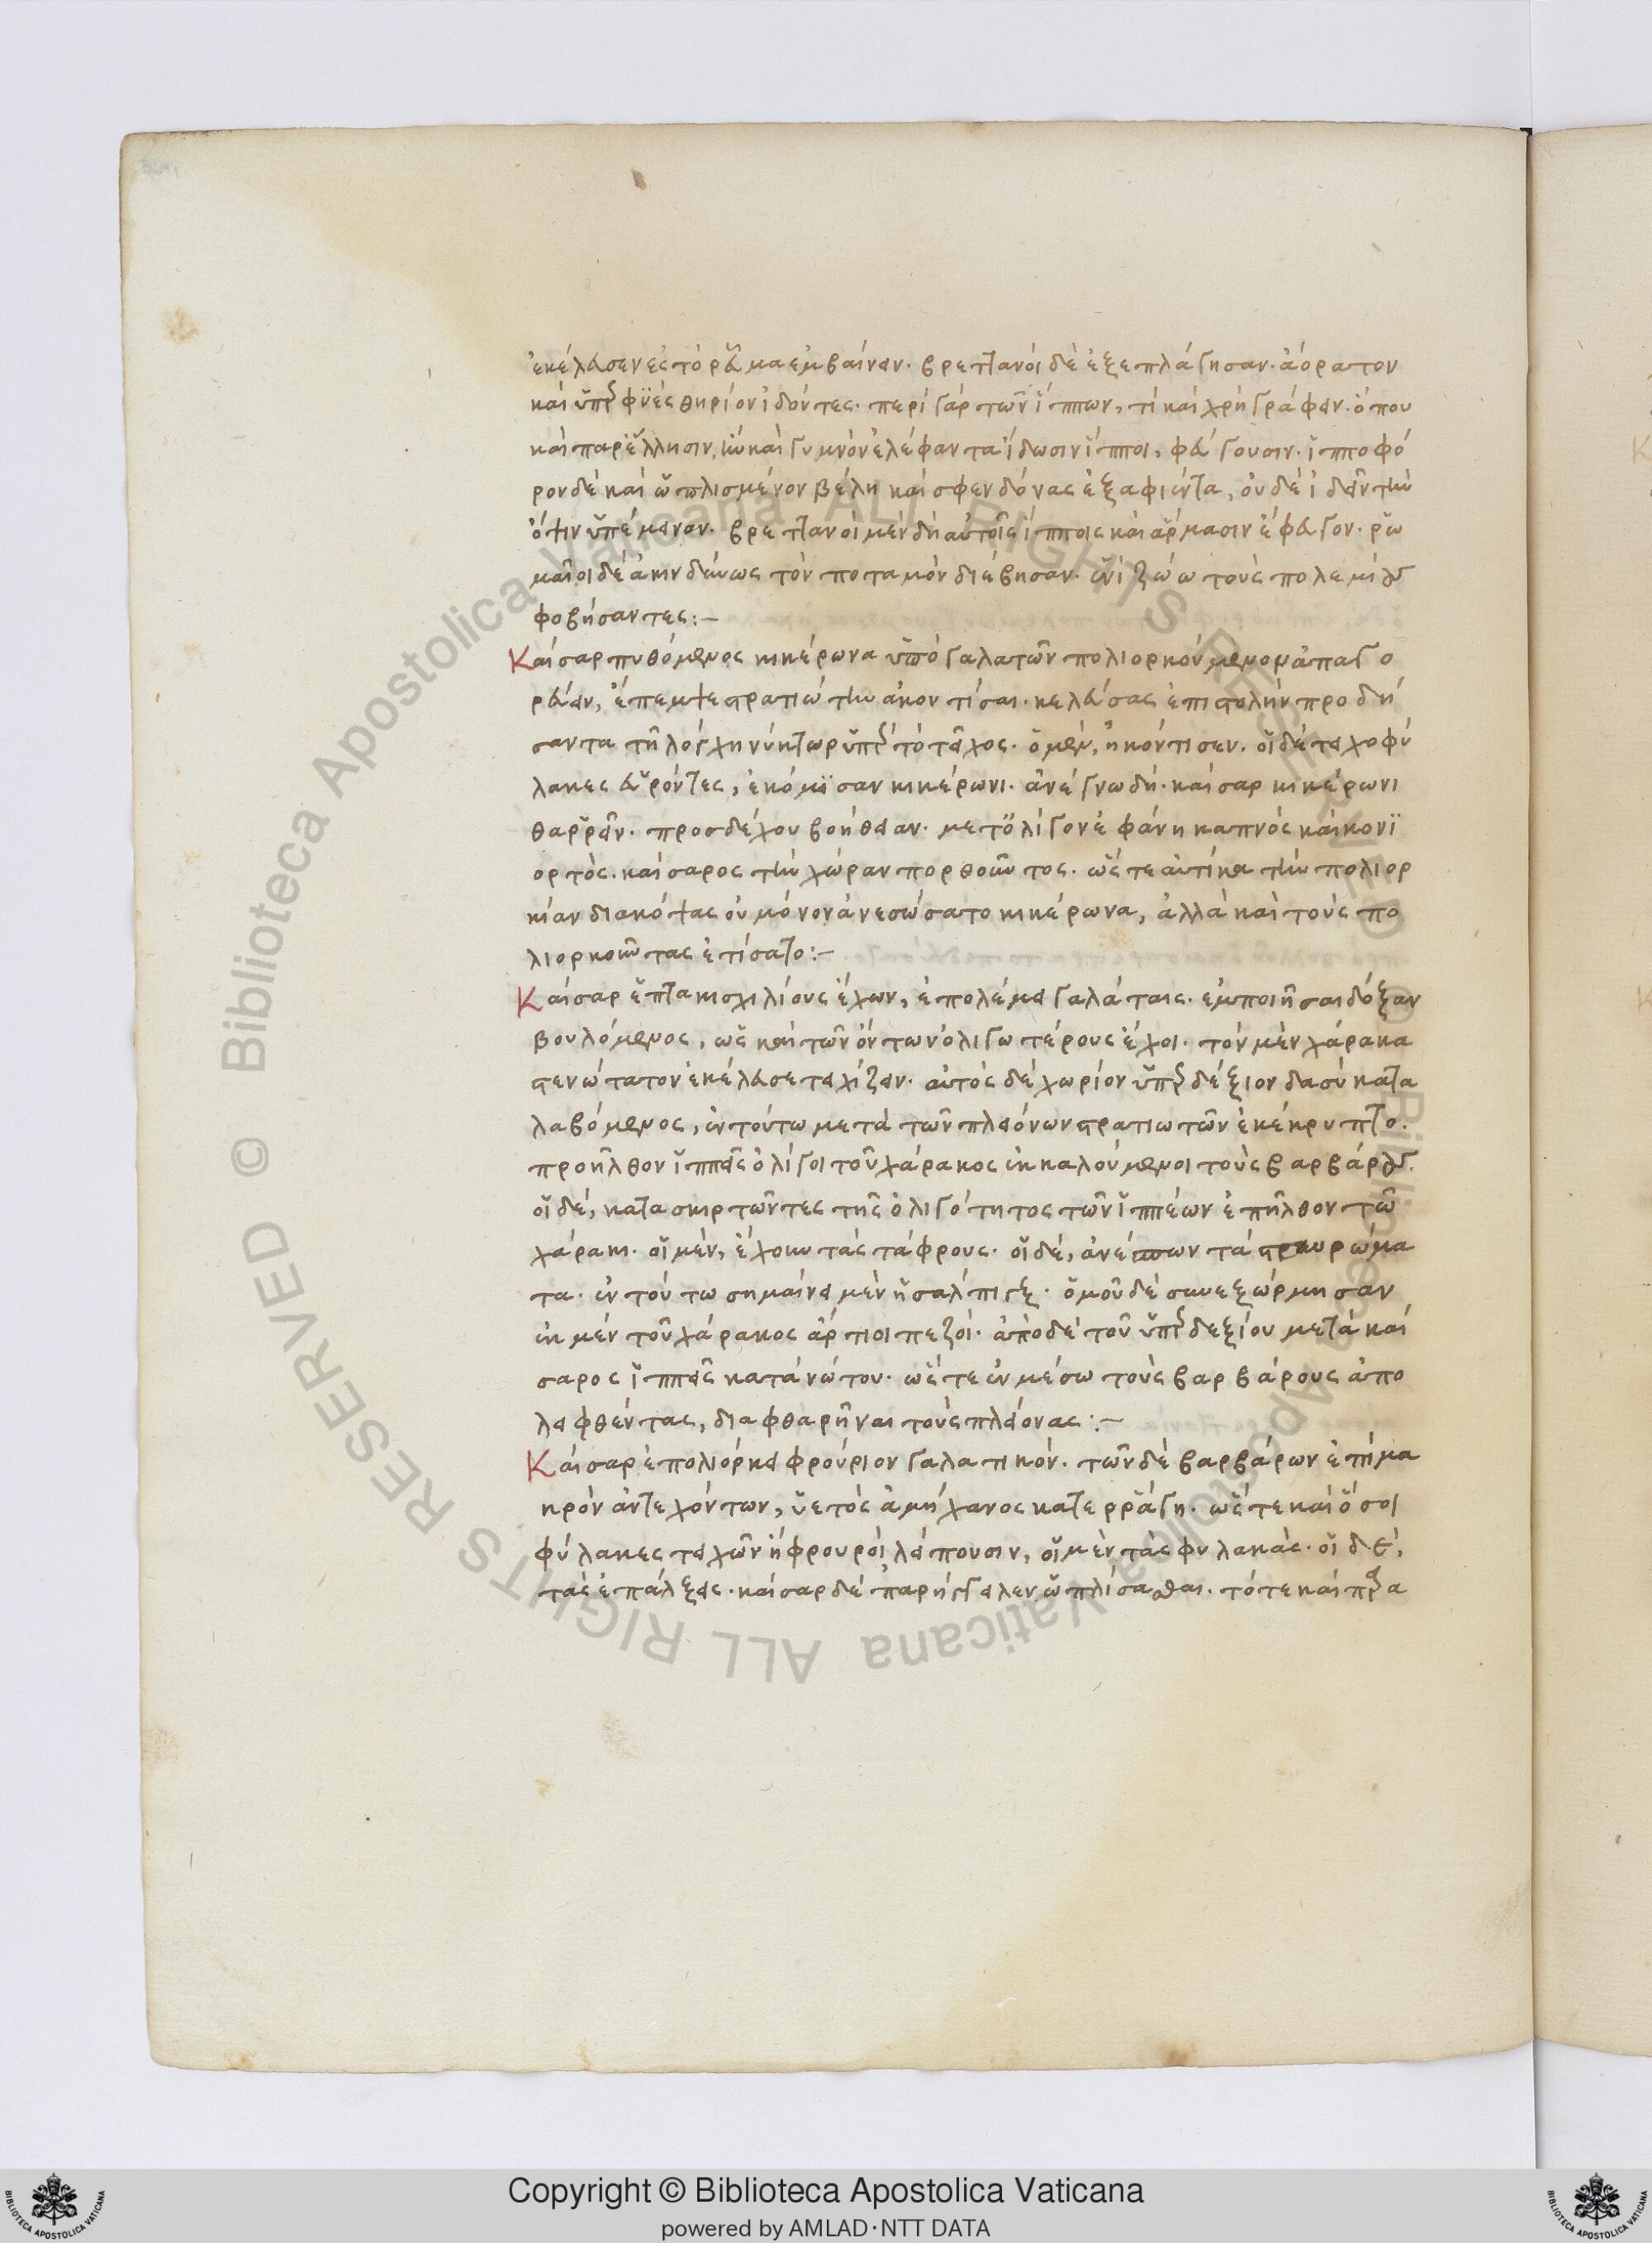 ἐκέλευσεν ἐς τὸ ῥεῦμα ἐμβαίνειν. βρεττανοὶ δὲ ἐξεπλάγησαν. ἀόρατον
καὶ ὑπερφυὲς θηρίον ἰδόντες. περὶ γὰρ τῶν ἵππων, τί καὶ χρὴ γράφειν. ὅπου
καὶ παρ' ἕλλησιν, κἂν καὶ γυμνὸν ἐλέφαντα ἴδωσιν ἵπποι, φεύγουσιν. ἱπποφό
ρον δὲ καὶ ὡπλισμένον βέλη καὶ σφενδόνας ἐξαφιέντα, οὐδὲ ἰδεῖν τὴν
ὄψιν ὑπέμειναν. βρεττανοὶ μὲν δὴ αὐτοῖς ἵπποις καὶ ἅρμασιν ἔφευγον. ῥω
μαῖοι δὲ ἀκινδύνως τὸν ποταμὸν διέβησαν. ἑνὶ ζώω τοὺς πολεμίους
φοβήσαντες:–
Καίσαρ πυθόμενος κικέρωνα ὑπὸ γαλατῶν πολιορκούμενον ἀπαγο
ρεύειν, ἔπεμψε στρατιώτην ἀκοντίσαι. κελεύσας ἐπιστολὴν προσδή
σαντα τῇ λόγχῃ νύκτωρ ὑπὲρ τὸ τεῖχος. ὁ μὲν, ἠκόντισεν. οἱ δὲ τειχοφύ
λακες εὑρόντες, ἐκόμισαν κικέρωνι. ἀνέγνω δὴ. καίσαρ κικέρωνι
θαρρεῖν. προσδέχου βοήθειαν. μετ' ὀλίγον ἐφάνη καπνὸς καὶ κονϊ
ορτὸς. καίσαρος τὴν χώραν πορθοῦντος. ὥς τε αὐτίκα τὴν πολιορ
κίαν διακόψας οὐ μόνον ἀνεσώσατο κικέρωνα, ἀλλὰ καὶ τοὺς πο
λιορκοῦντας ἐτίσατο:–
Καίσαρ ἑπτακισχιλίους ἔχων, ἐπολέμει γαλάταις. ἐμποιῆσαι δόξαν
βουλόμενος, ὡς καὶ τῶν ὄντων ὀλιγωτέρους ἔχοι. τὸν μὲν χάρακα
στενώτατον ἐκέλευσε τειχίζειν. αὐτὸς δὲ χωρίον ὑπερδέξιον δασὺ κατα
λαβόμενος, ἐν τούτω μετὰ τῶν πλειόνων στρατιωτῶν ἐκέκρυπτο.
προῆλθον ἱππεῖς ὀλίγοι τοῦ χάρακος ἐκκαλούμενοι τοὺς βαρβάρους.
οἱ δὲ, κατασκιρτῶντες τῆς ὀλιγότητος τῶν ἱππέων ἐπῆλθον τῶ
χάρακι. οἱ μὲν, ἔχουν τὰς τάφρους. οἱ δὲ, ἀνέσπων τὰ σταυρώμα
τα. ἐν τούτω σημαίνει μὲν ἡ σάλπιγξ. ὁμοῦ δὲ συνεξώρμησαν
ἐκ μὲν τοῦ χάρακος ἄρτιοι πεζοὶ. ἀπὸ δὲ τοῦ ὑπερδεξίου μετὰ καί
σαρος ἱππεῖς κατὰ νώτου. ὥς τε ἐν μέσω τοὺς βαρβάρους ἀπο
λειφθέντας, διαφθαρῆναι τοὺς πλείονας:–
Καίσαρ ἐπολιόρκει φρούριον γαλατικόν. τῶν δὲ βαρβάρων ἐπὶ μα
κρὸν ἀντεχόντων, ὑετὸς ἀμήχανος κατερράγη. ὥς τε καὶ ὅσοι
φύλακες τειχῶν ἢ φρουροὶ λείπουσιν, οἱ μὲν τὰς φυλακάς. οἱ δὲ,
τὰς ἐπάλξεις. καίσαρ δὲ παρήγγειλεν ὡπλίσασθαι. τότε καὶ παρα